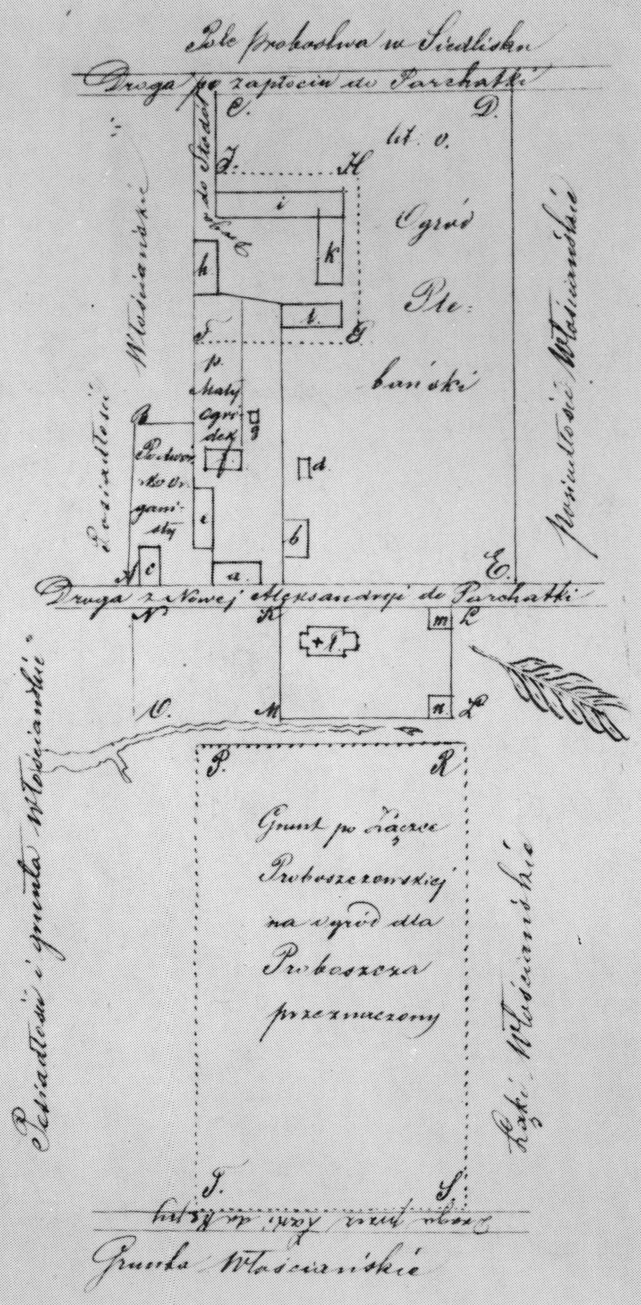 Pole Probostwa w Siedlisku
Droga po zapłociu do Parchatki
C.
D.
lit: o.
J.
H
Droga do Stodół
i
Ogród
h
k
Ple:
l.
F.
G
bański
p.
Mały
ogró
dek
g
B
Podwór
ko or
gani-
sty
f
d.
e
b
A
c
a.
E.
Posiadłości Włościańskie
posiadłości Włościańskie
Droga z Nowej Aleksandryi do Parchatki
N
K
m
L
+
O.
M
n
L
P.
R
Grunt po Łączce
Proboszczowskiej
na ogród dla
Proboszcza
przeznaczony
Posiadłości i grunta Włościańskie
Łąki Włościańskie
T.
S.
Droga przez Łąki do
Grunta Włościańskie